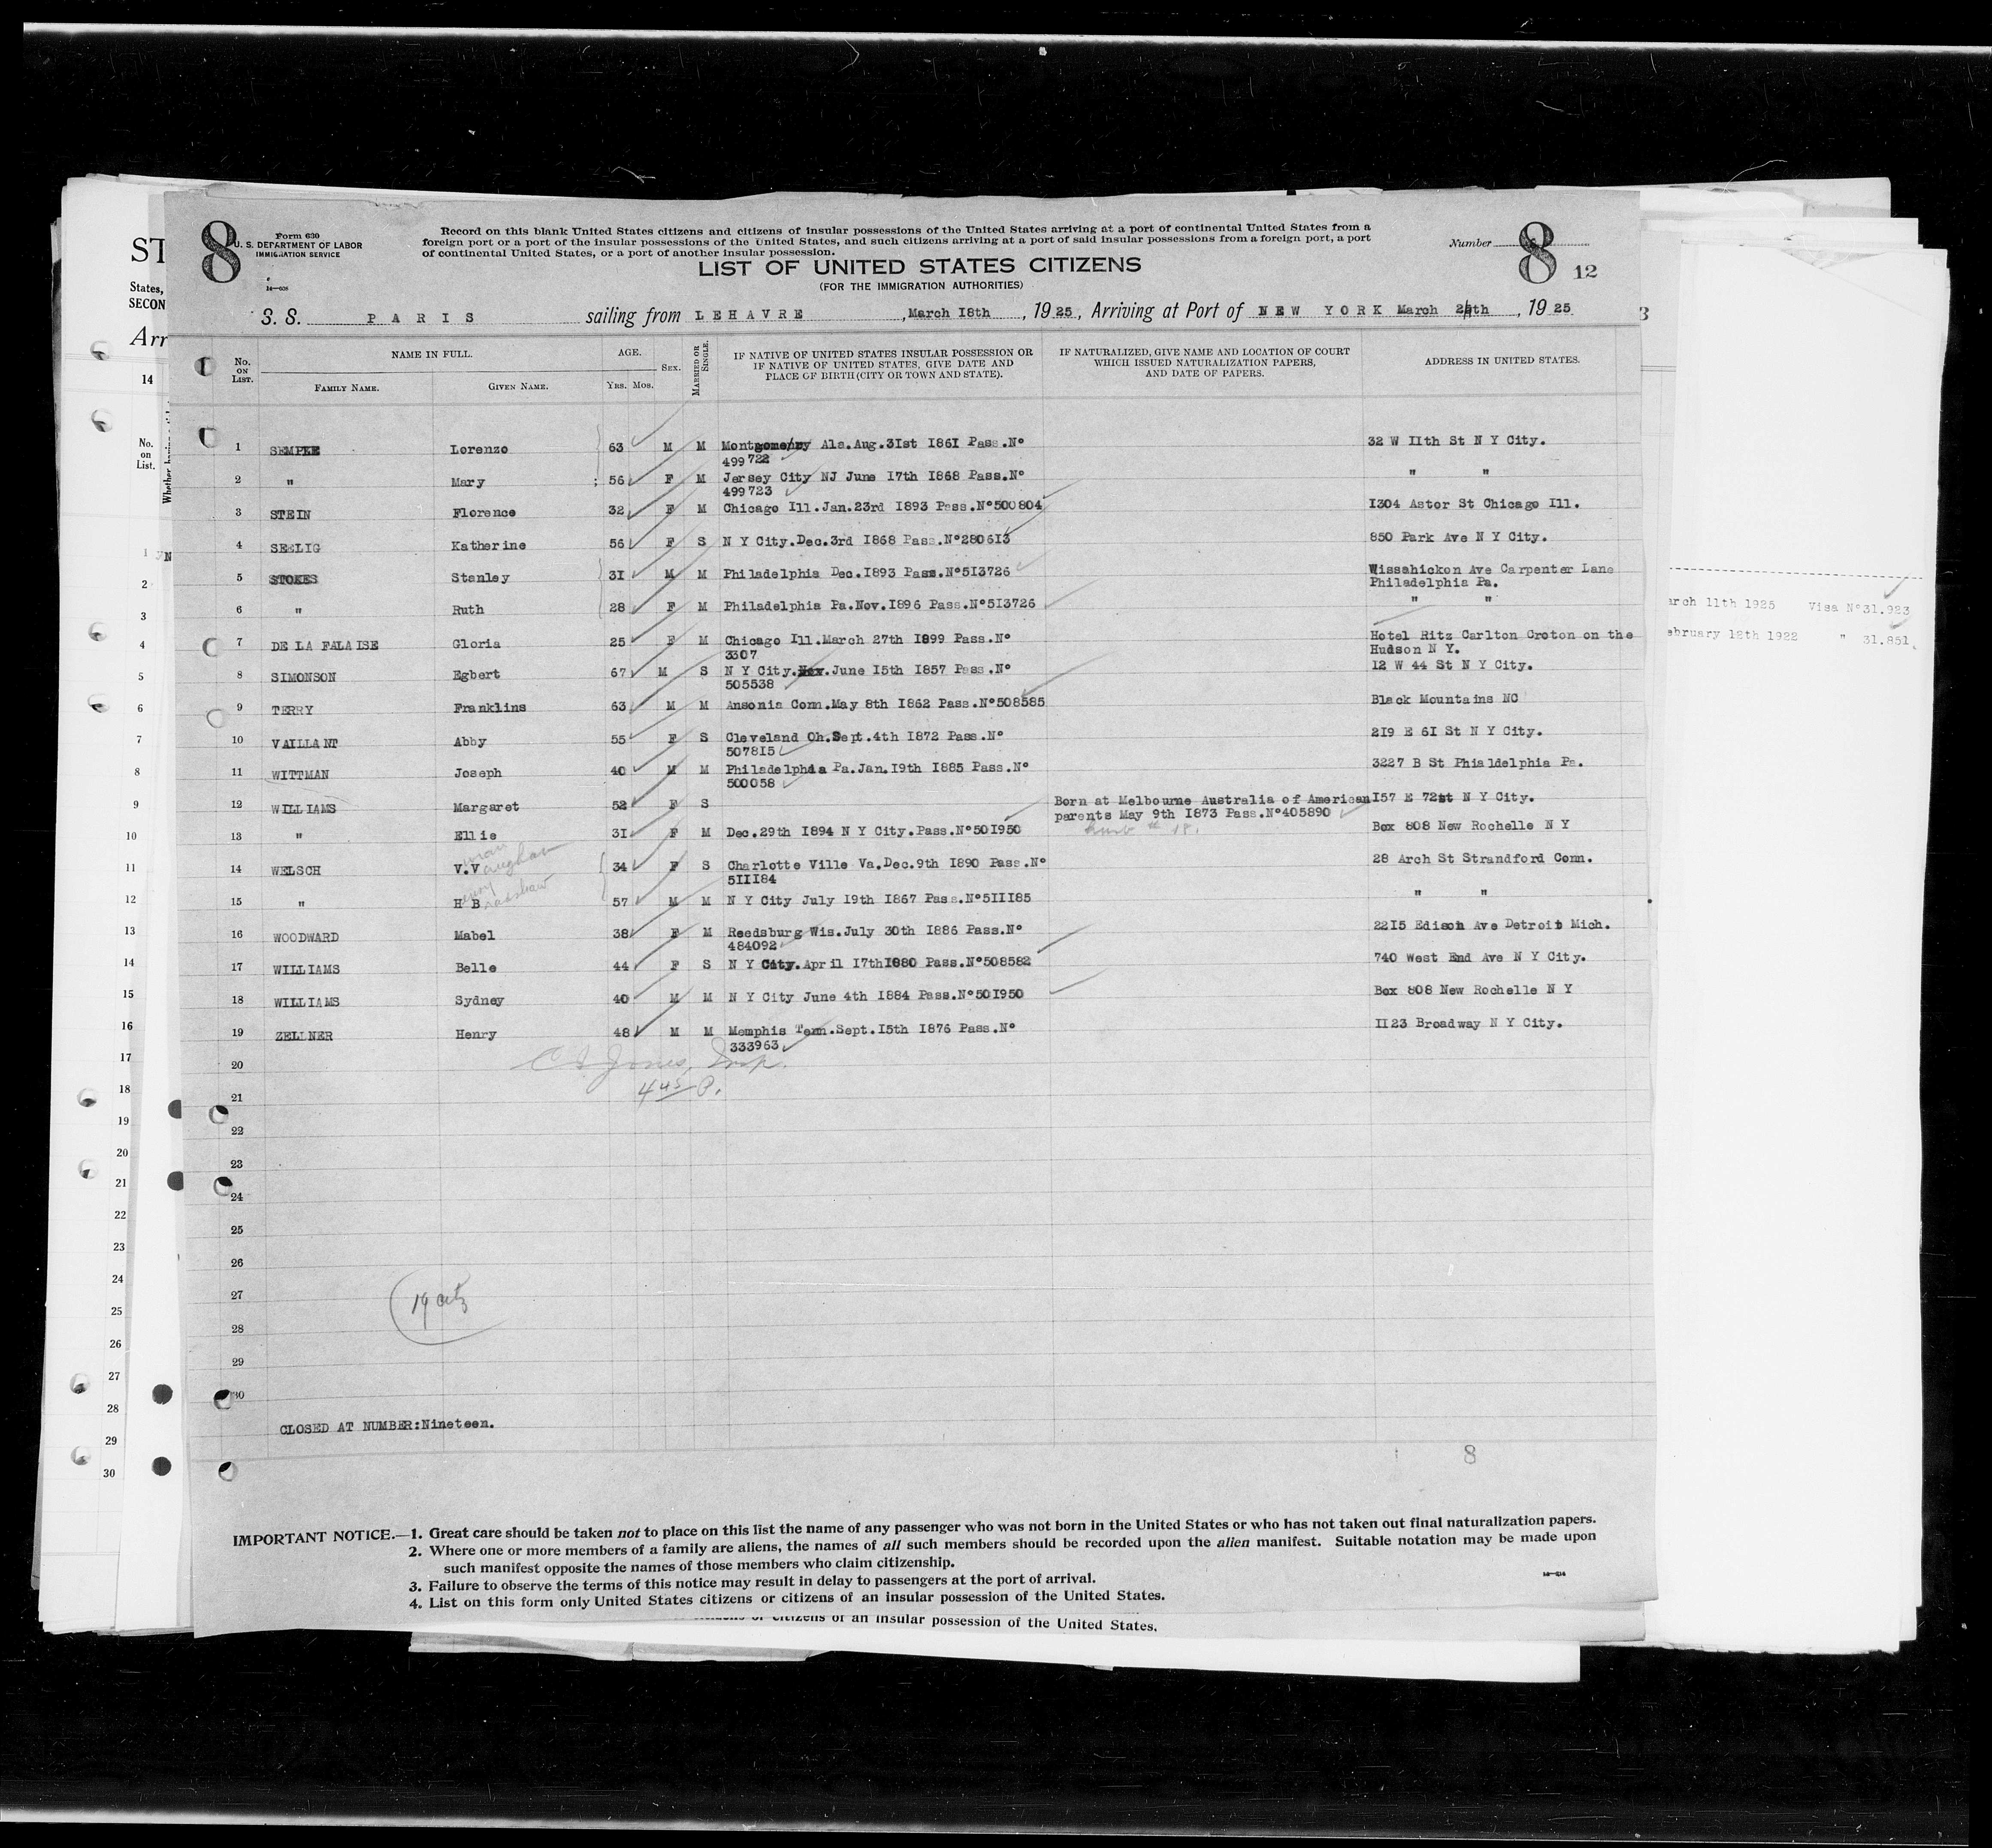 8
Form 630
U. S. DEPARTMENT OF LABOR
IMMIGRATION SERVICE
14—608
Record on this blank United States citizens and citizens of insular possessions of the United States arriving at a port of continental United States from a
foreign port or a port of the insular possessions of the United States, and such citizens arriving at a port of said insular possessions from a foreign port, a port
of continental United States, or a port of another insular possession.
LIST OF UNITED STATES CITIZENS
(FOR THE IMMIGRATION AUTHORITIES)
Number 8
12
S. S. PARIS sailing from LEHAVRE, March 18th, 1925, Arriving at Port of NEW YORK March th, 1925
No. ON LIST. NAME IN FULL. FAMILY NAME. GIVEN NAME. AGE. YRS. MOS. SEX. MARRIED OR SINGLE. IF NATIVE OF UNITED STATES INSULAR POSSESSION OR IF NATIVE OF UNITED STATES, GIVE DATE AND PLACE OF BIRTH (CITY OR TOWN AND STATE). IF NATURALIZED, GIVE NAME AND LOCATION OF COURT WHICH ISSUED NATURALIZATION PAPERS, AND DATE OF PAPERS. ADDRESS IN UNITED STATES.
1 Lorenzo 63 M M Montgomery Ala. Aug. 31st 1861 Pass. N° 32 W 11th St N Y City.
499722
2 " Mary 56 F M Jersey City NJ June 17th 1868 Pass.N° " "
499723
3 STEIN Florence 32 F M Chicago Ill.Jan.23rd 1893 Pass.N°500804 1304 Astor St Chicago Ill.
4 SEELIG Katherine 56 F S N Y City.Dec.3rd 1868 Pass.N°280613 850 Park Ave N Y City.
5 STOKES Stanley 31 M M Philadelphia Dec.1893 Pass.N°513726 Wissahickon Ave Carpenter Lane
Philadelphia Pa.
6 " Ruth 28 F M Philadelphia Pa.Nov.1896 Pass.N°513726 " "
7 DE LA FALAISE Gloria 25 F M Chicago Ill.March 27th 1899 Pass.N° Hotel Ritz Carlton Croton on the
3307 Hudson N Y.
8 SIMONSON Egbert 67 M S N Y City.Nov.June 15th 1857 Pass.N° 12 W 44 St N Y City.
505538
9 TERRY Franklins 63 M M Ansonia Conn.May 8th 1862 Pass.N°508585 Black Mountains NC
10 VAILLANT Abby 55 F S Cleveland Oh.Sept.4th 1872 Pass.N° 219 E 61 St N Y City.
507815
11 WITTMAN Joseph 40 M M Philadelphia Pa.Jan.19th 1885 Pass.N° 3227 B St Phialdelphia Pa.
500058
12 WILLIAMS Margaret 52 F S Born at Melbourne Australia of American 157 E 72st N Y City.
parents May 9th 1873 Pass.N°405890
13 " Ellie 31 F M Dec.29th 1894 N Y City.Pass.N°501950 # 18. Box 808 New Rochelle N Y
14 WELSCH V.Vaughan 34 F S Charlotte Ville Va.Dec.9th 1890 Pass.N° 28 Arch St Strandford Conn.
511184
15 " H B 57 M M N Y City July 19th 1867 Pass.N°511185 " "
16 WOODWARD Mabel 38 F M Reedsburg Wis.July 30th 1886 Pass.N° 2215 Edison Ave Detroit Mich.
484092
17 WILLIAMS Belle 44 F S N Y City.April 17th1880 Pass.N°508582 740 West End Ave N Y City.
18 WILLIAMS Sydney 40 M M N Y City June 4th 1884 Pass.N°501950 Box 808 New Rochelle N Y
19 ZELLNER Henry 48 M M Memphis Tenn.Sept.15th 1876 Pass.N° 1123 Broadway N Y City.
333963
20 Jones, Insp.
21 4 45 P.
22
23
24
25
26
27 19
28
29
30
CLOSED AT NUMBER:Nineteen.
8
IMPORTANT NOTICE.—1. Great care should be taken not to place on this list the name of any passenger who was not born in the United States or who has not taken out final naturalization papers.
2. Where one or more members of a family are aliens, the names of all such members should be recorded upon the alien manifest. Suitable notation may be made upon
such manifest opposite the names of those members who claim citizenship.
3. Failure to observe the terms of this notice may result in delay to passengers at the port of arrival.
4. List on this form only United States citizens or citizens of an insular possession of the United States.
citizens of an insular possession of the United States.
ST
States,
SECON
Arr
14
No.
on
List.
1
2
3
4
5
6
7
8
9
10
11
12
13
14
15
16
17
18
19
20
21
22
23
24
25
26
27
28
29
30
3
arch 11th 1925 Visa N°31.923
ebruary 12th 1922 " 31.851